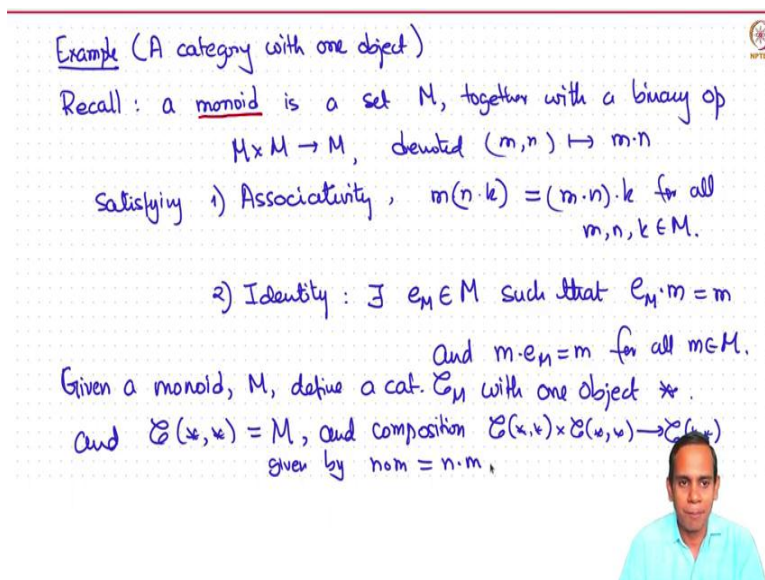 Example (A category with one object)
Recall : a monoid is a set M, together with a binary op
M×M → M, denoted (m,n) ↦ m·n
Satisfying 1) Associativity, m(n·k) = (m·n)·k for all
m,n,k∈M.
2) Identity : ∃ e_M ∈ M such that e_M·m = m
and m·e_M = m for all m∈M.
Given a monoid, M, define a cat. 𝒞_M with one object *.
and 𝒞(*,*) = M, and composition 𝒞(*,*)×𝒞(*,*)→𝒞(
given by n∘m = n·m.
NPTE